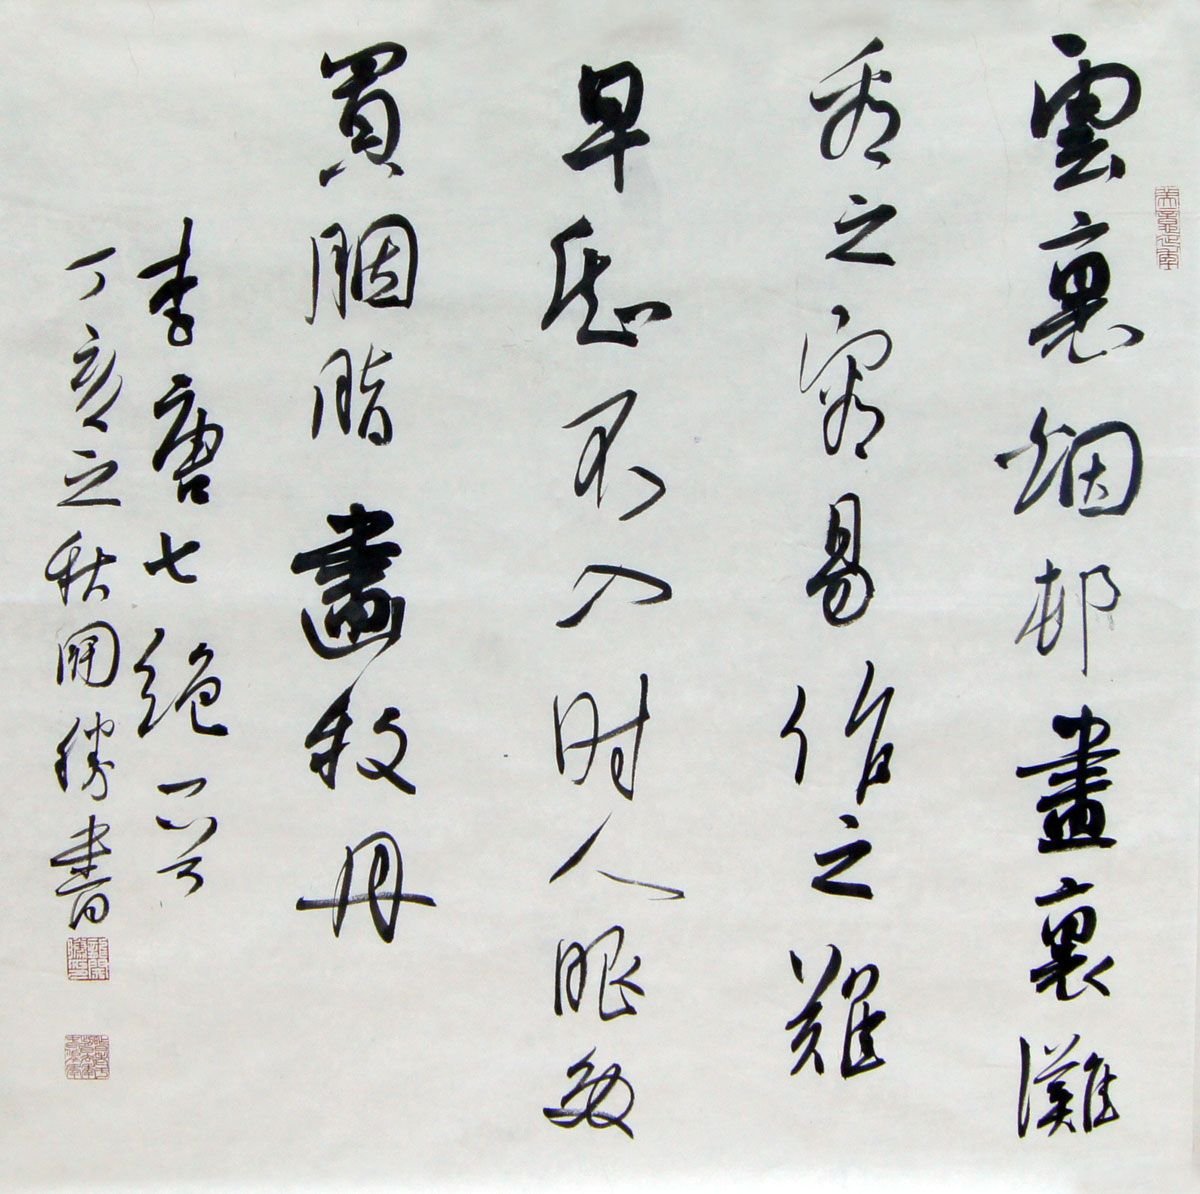 雲裏烟邨畫裏灘
看之容易作之難
早知不入時人眼多
買胭脂畫牡丹
李唐七絕一首
丁亥之秋開勝書